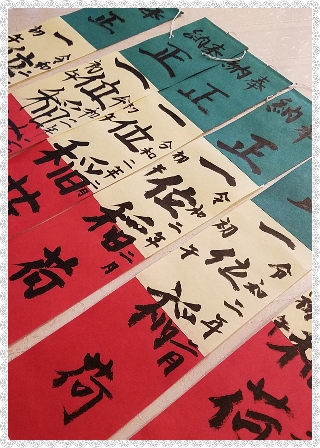 納奉
正一位稲荷
令和二年二月
初午
納奉
正一位稲荷
令和二年二月
初午
納奉
正一位稲荷
令和二年二月
初午
奉
正一位稲荷
令和二年
初午